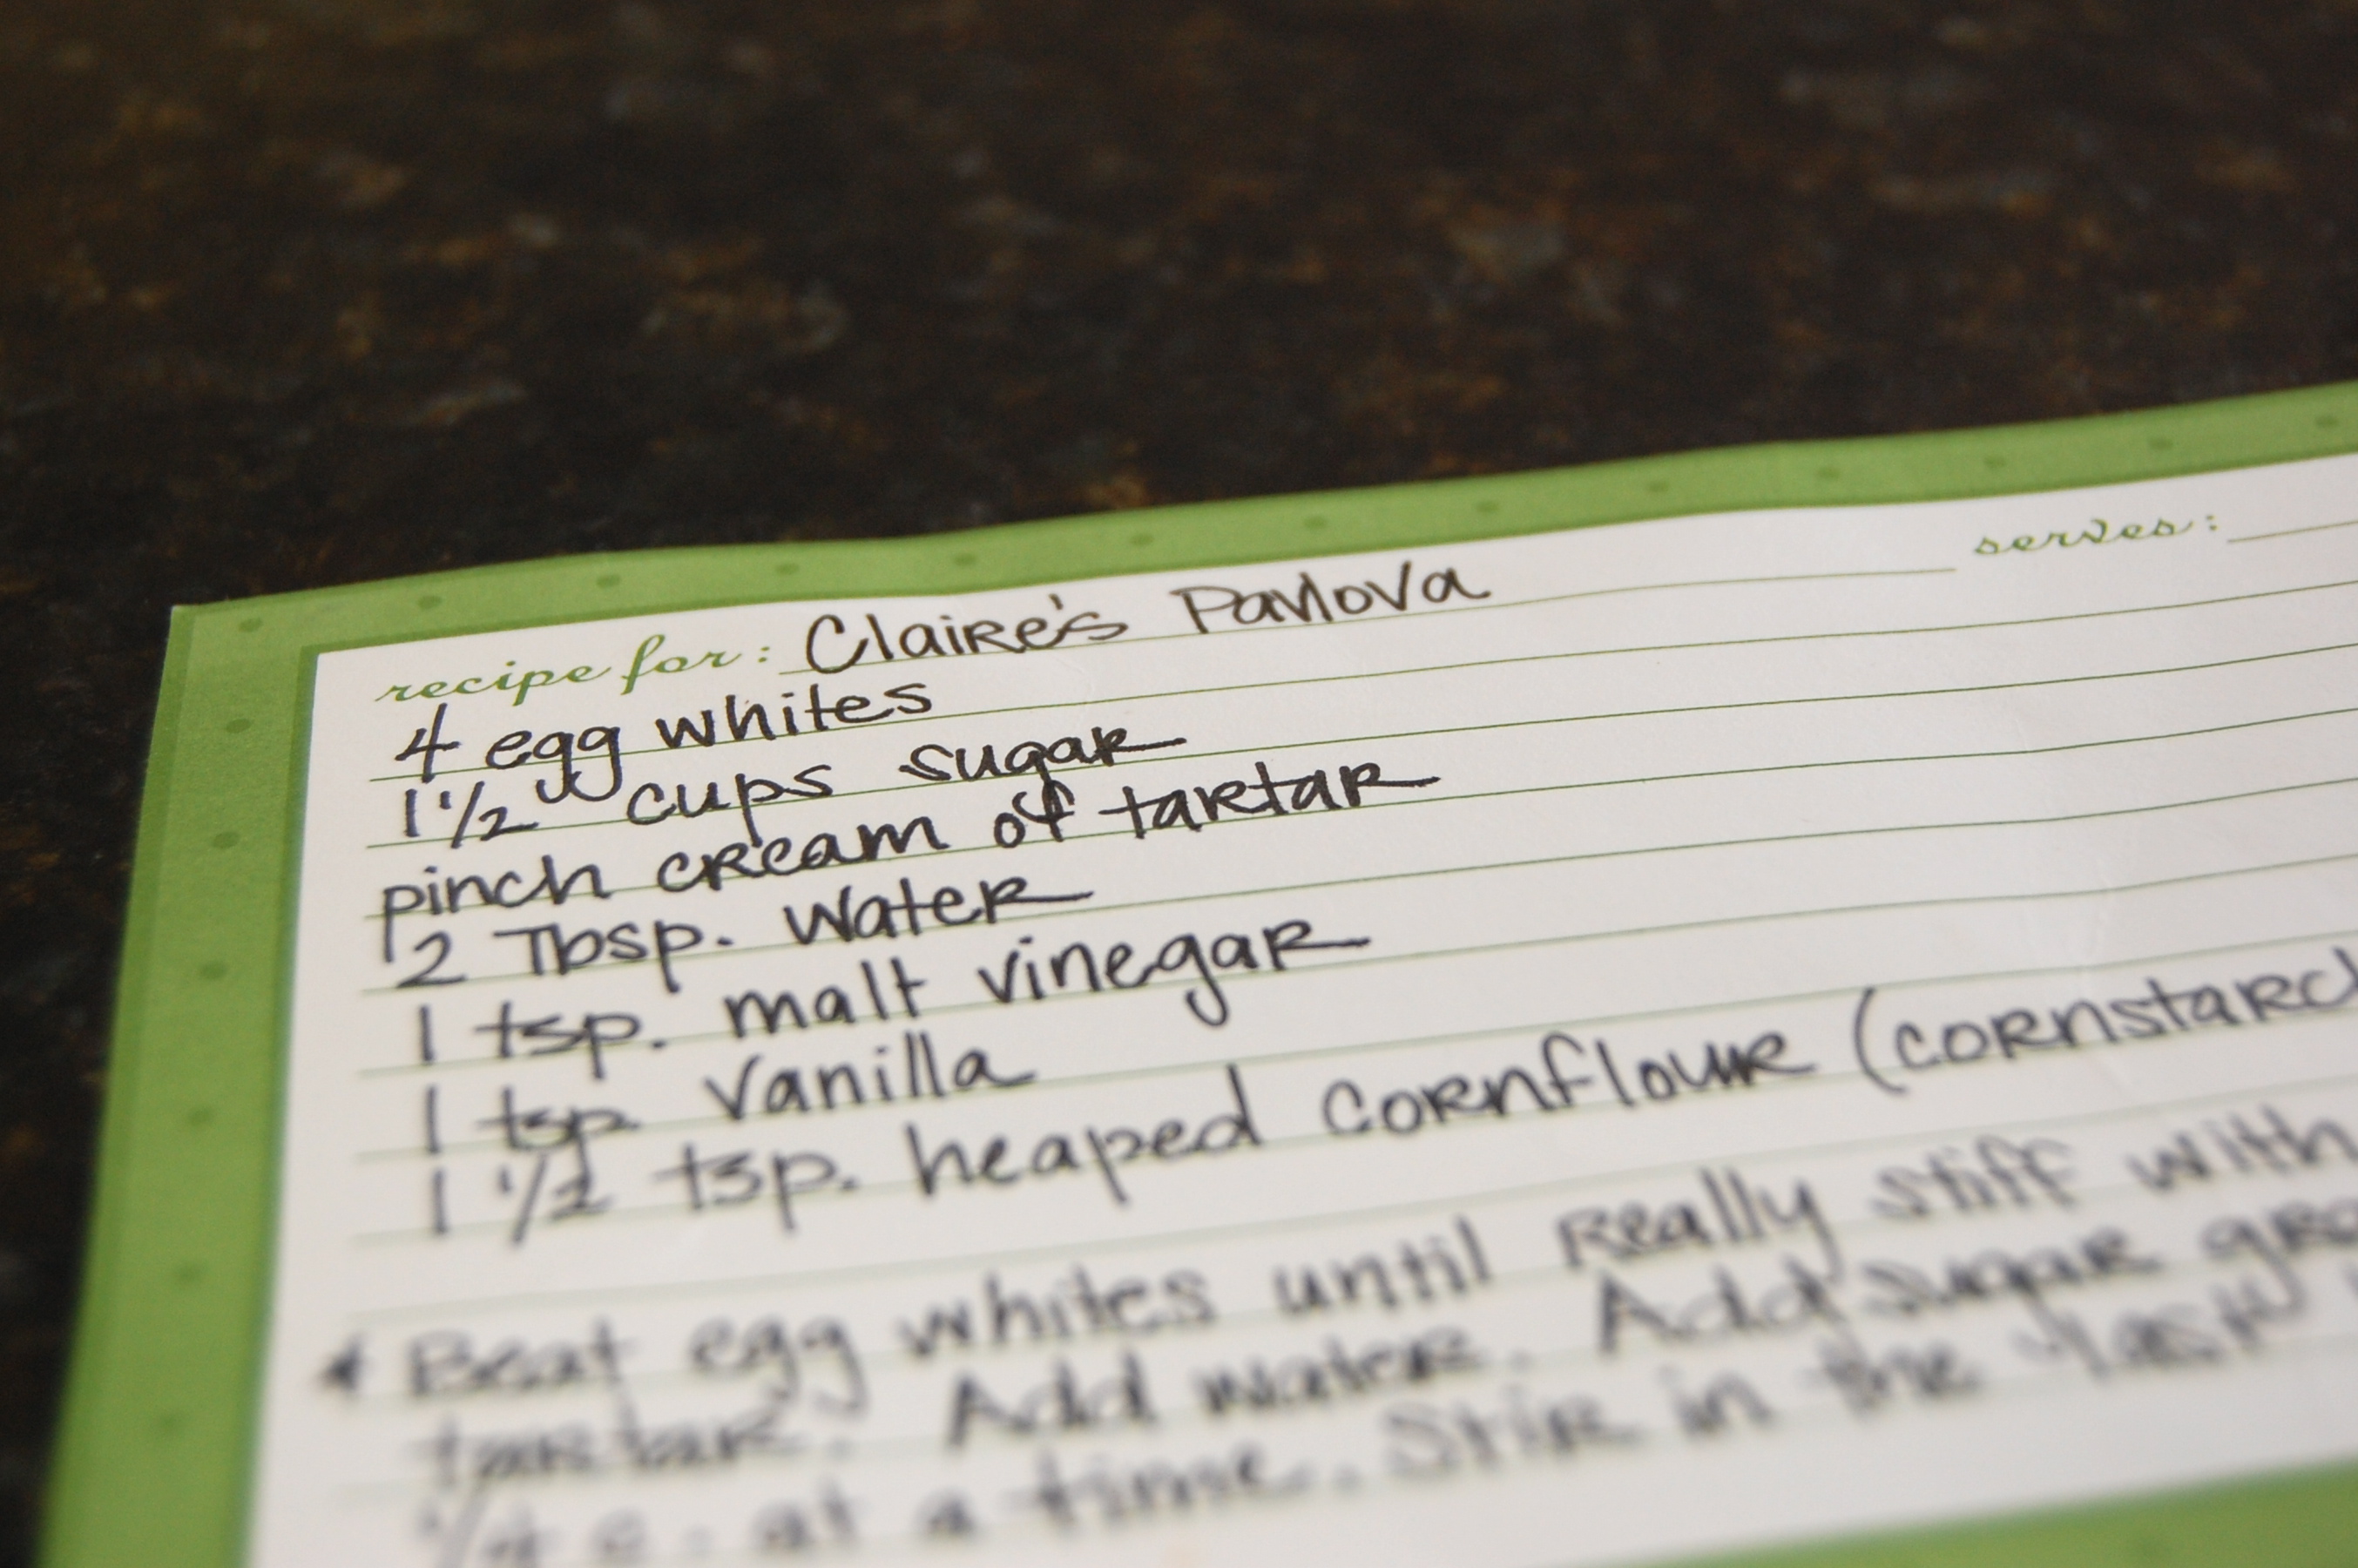 recipe for: Claire's Pavlova serves:
4 egg whites
1 1/2 cups sugar
pinch cream of tartar
2 Tbsp. water
1 tsp. malt vinegar
1 tsp. vanilla
1 1/2 tsp. heaped cornflour (cornstarch
Beat egg whites until really stiff with
tartar. Add water. Add sugar
1/4 c. at a time. Stir in the "last"